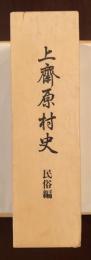 上齋原村史
民俗編